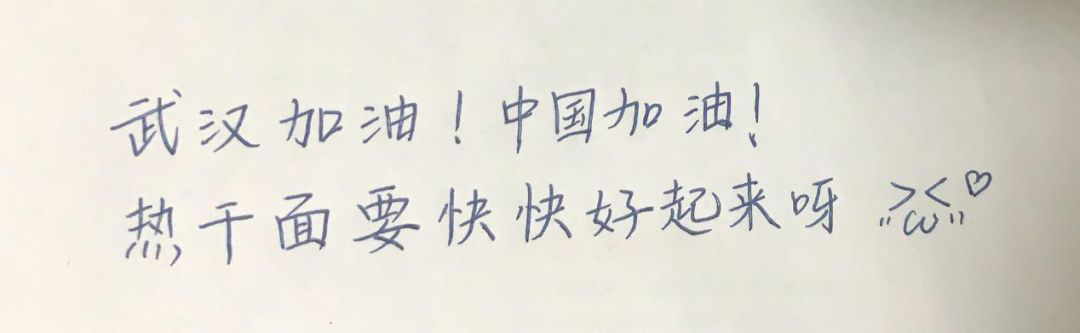 武汉加油！中国加油！
热干面要快快好起来呀 "><"ω ♡